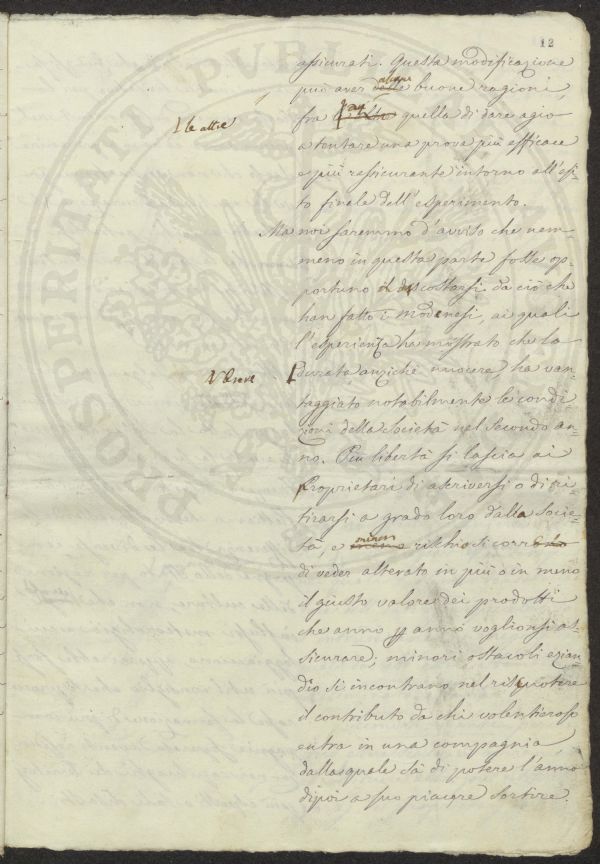 12
assicurati. Questa modificazione
può aver delle alcune buone ragioni,
fra le altre quella di dare agio
le altre
a tentare una prova più efficace
e più rassicurante intorno all'esi-
to finale dell'esperimento.
Ma noi saremmo d'avviso che nem-
meno in questa parte fosse op-
portuno il discostarsi da ciò che
han fatto i Modenesi, ai quali
l'esperienza ha mostrato che la
breve
durata anziché nuocere, ha van-
taggiato notabilmente le condi-
zioni della Società nel secondo an-
no. Più libertà si lascia ai
Proprietari di ascriversi o di ri-
tirarsi a grado loro dalla Socie-
tà, e minor rischio si corre
di veder alterato in più o in meno
il giusto valore dei prodotti
che anno p anno voglionsi as-
sicurare; minori ostacoli ezian-
dio si incontrano nel riscuotere
il contributo da chi volenteroso
entra in una compagnia,
dalla quale sà di potere l'anno
dipoi a suo piacere sortire.
PROSPERITATI PVBLICAE